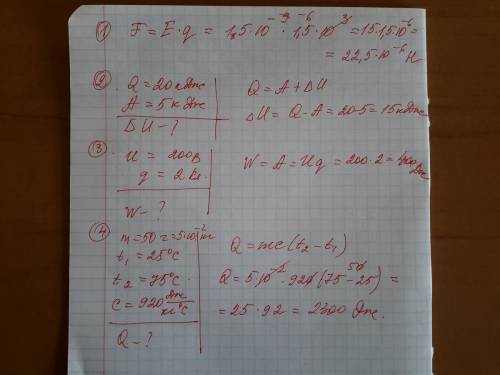 ① F = E·q = 1,5·10⁻⁹⁻⁶·1,5·10³ = 15·1,5·10⁻⁶ =
= 22,5·10⁻⁶ Н
② Q = 20 кдже
A = 5 кдже
ΔU - ?
Q = A + ΔU
ΔU = Q - A = 20-5 = 15 кдже
③ U = 200 В
q = 2 кл.
W - ?
W = A = Uq = 200·2 = 400 дже
④ m = 50 г = 5·10⁻² кг
t₁ = 25°C
t₂ = 75°C
c = 920 дже/кг°C
Q - ?
Q = mc(t₂ - t₁)
Q = 5·10⁻²·920(75-25) 50 =
= 25·92 = 2300 дже.